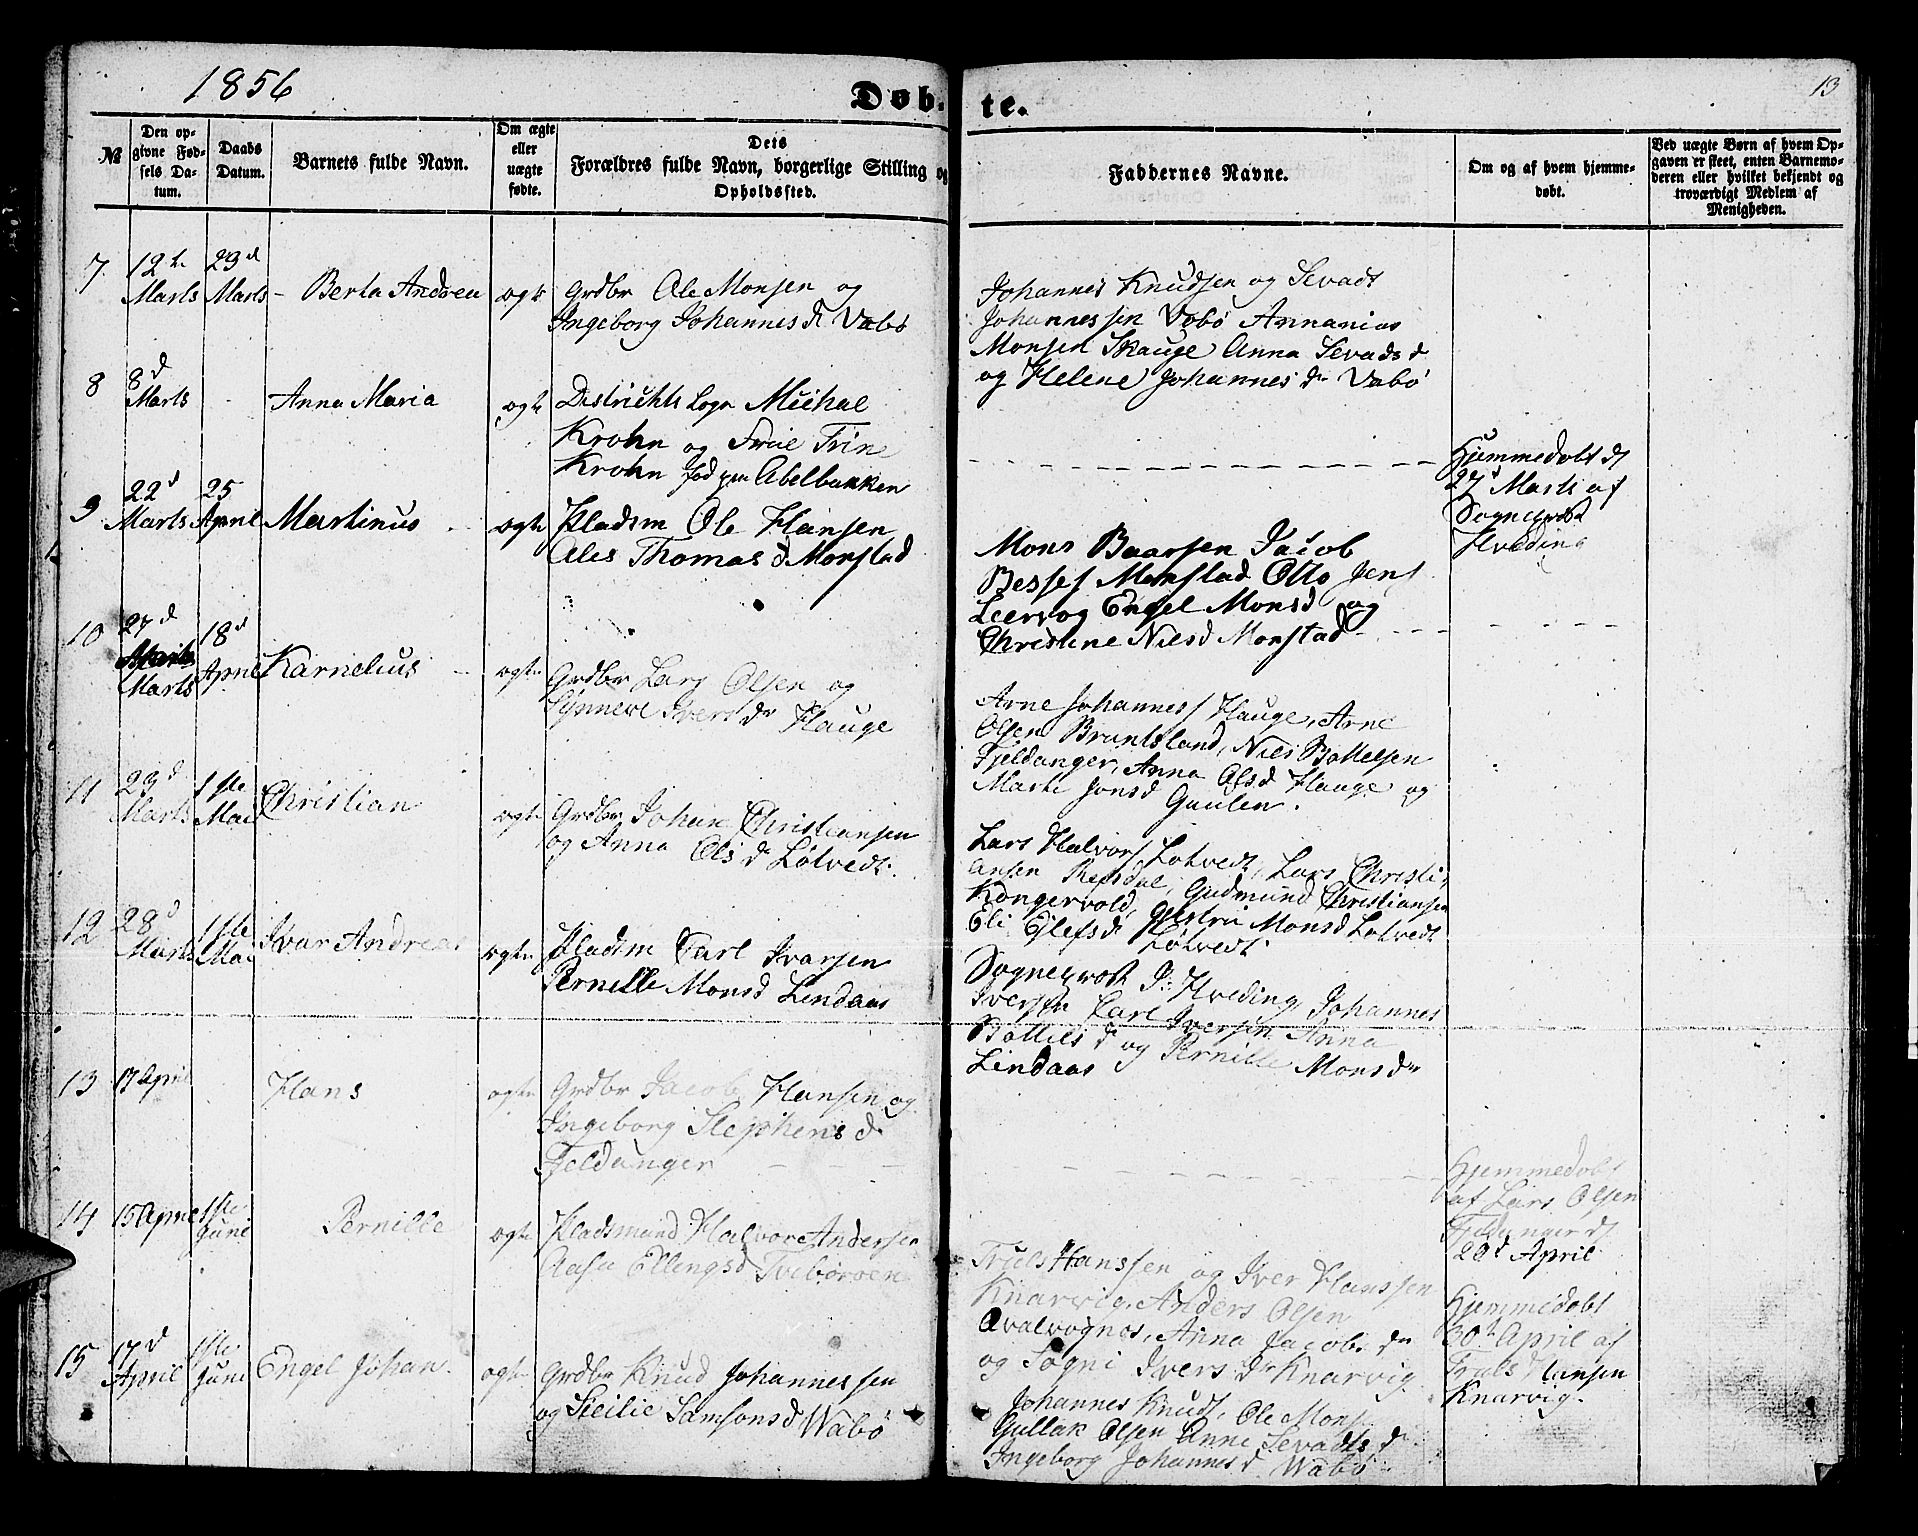 1856
Døb-
te.
13
№
Den op-
givne Fød-
sels Da-
tum.
Daabs
Datum.
Barnets fulde Navn.
Om ægte
eller
uægte
fødte.
Dets
Forældres fulde Navn, borgerlige Stilling og
Opholdssted.
Faddernes Navne.
Om og af hvem hjemme-
døbt.
Ved uægte Børn af hvem Op-
gaven er skeet, enten Barnemo-
deren eller hvilket bekjendt og
troværdigt Medlem af
Menigheden.
7
12te 23d
Marts Marts
Berta Andrea
ægte
Grdbr Ole Monsen og
Ingeborg Johannes dr Vabø
Johannes Knudsen og Sevadt
Johannessen Vabø Annanias
Monsen Skauge Anna Sevads d
og Helene Johannes dr Vabø
8
8d
Marts
Anna Maria
ægte
Distrikts Michal
Krohn og Frue Trine
Krohn fød paa Abelbakken
Hjemmedøbt d
27d Marts af
Sogneprest
Hveding
9
22d 25
Marts April
Martinus
ægte
Pladsm Ole Hansen
Ales Thomas d Monstad
Mons Baarsen Jacob
Besses Monstad Otto Jens
Leervog Engel Monsd og
Christine Nilsd Monstad
10
27d 18d
Marts April
Karnelius
ægte
Grdbr Lars Olsen og
Synneve Ivers dr Hauge
Arne Johanness Hauge, Arne
Olsen Bruntsland, Niels Bottelsen
Fjeldanger, Anna Olsd Hauge og
Marte Jonsd Gaulen.
11
23d 1ste
Marts Mai
Christian
ægte
Grdbr Johan Christiansen
og Anna Ols d Løtvedt.
Lars Halvors Løtvedt, Lars Christi-
ansen Refsdal, Gudmund Christiansen
Kongervold,
Eli Elefsd Monsd Lotvedt
Løtvedt
12
28d 1ste
Marts Mai
Ivar Andreas
ægte
Pladsm Carl Ivarsen
Pernille Monsd Lindaas
Sogneprost Hveding Johannes
Iversen Carl Iversen Anna
Bottels d og Pernille Monsdr
Lindaas
13
17 April
Hans
ægte
Grdbr Jacob Hansen og
Ingeborg Stephens d
Fjeldanger
Hjemmedøbt
af Lars Olsen
Fjeldanger d
20d April
14
15 April 1ste
Juni
Pernille
ægte
Pladsmand Halvor Andersen
Aase Ellingsd Tveboroen
Truls Hanssen og Iver Hanssen
Knarvig, Anders Olsen
Qvalvognes, Anna Jacobs dr
og Sogni Ivers dr Knarvig
Hjemmedøbt
20d April af
Truls Hansen
Knarvig.
15
17d 1ste
April Juni
Engel Johan.
ægte
Grdbr Knud Johannessen
og Steilie Samsonsd Wabø
Johannes Knuds, Ole Mons
Gullak Olsen Anne Sevadts d
Ingeborg Johannesd Wabø